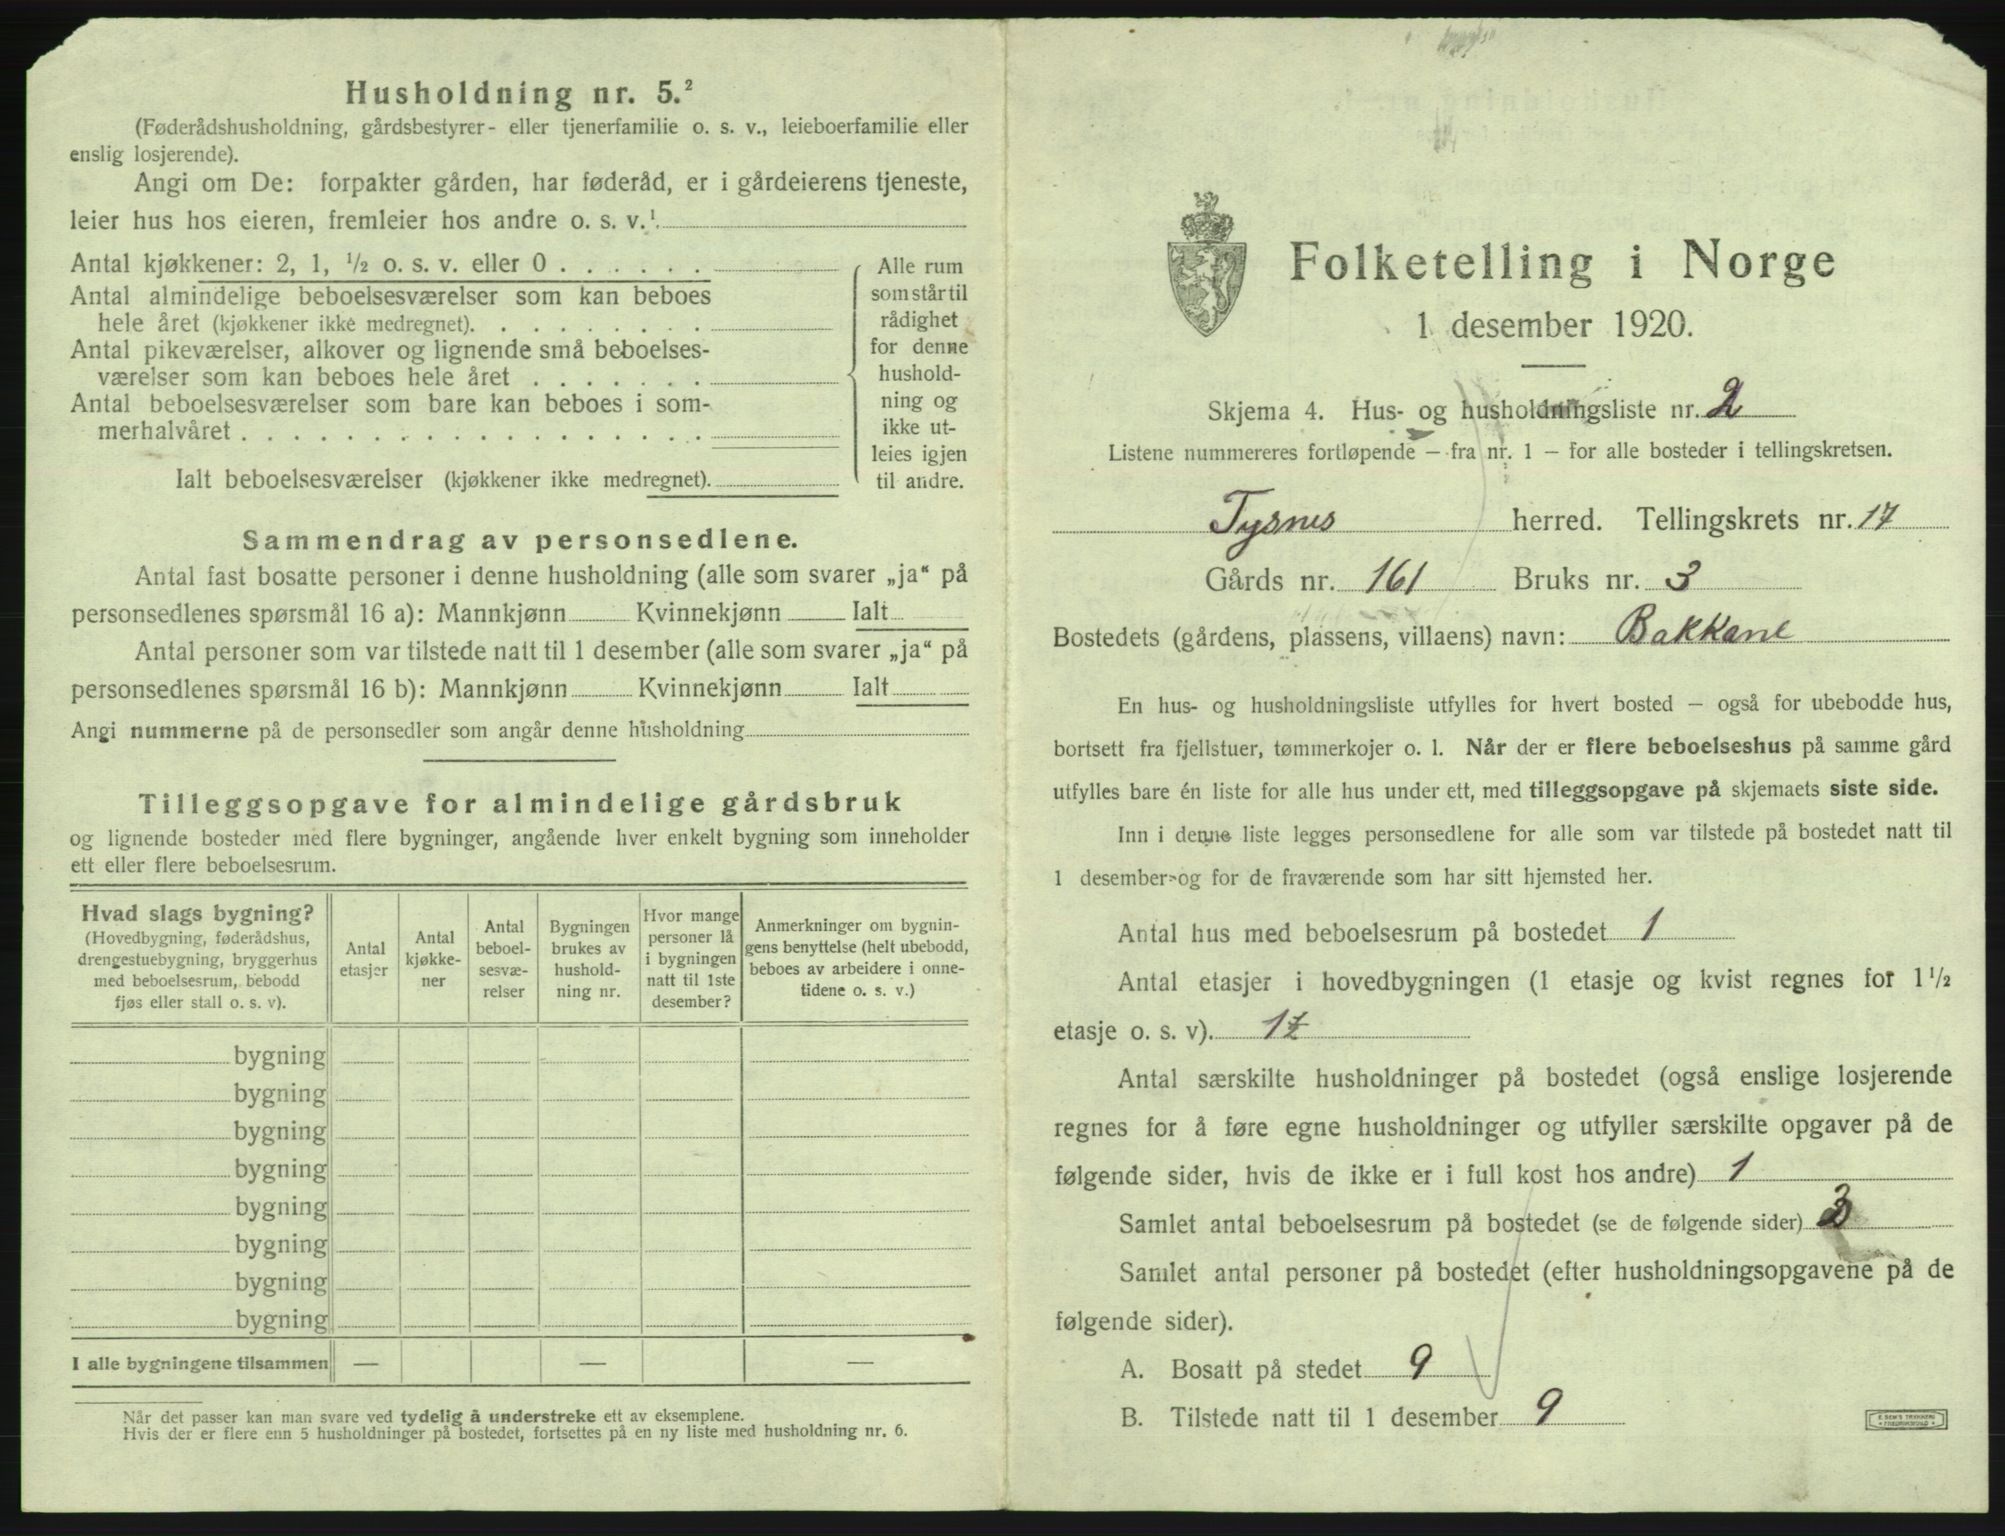 Husholdning nr. 5.²
(Føderådshusholdning, gårdsbestyrer- eller tjenerfamilie o. s. v., leieboerfamilie eller
enslig losjerende).
Angi om De: forpakter gården, har føderåd, er i gårdeierens tjeneste,
leier hus hos eieren, fremleier hos andre o. s. v.¹
Antal kjøkkener: 2, 1, ½ o. s. v. eller 0 . . . . . .
Antal almindelige beboelsesværelser som kan beboes
hele året (kjøkkener ikke medregnet). . . . . . . . .
Antal pikeværelser, alkover og lignende små beboelses-
værelser som kan beboes hele året . . . . . . .
Antal beboelsesværelser som bare kan beboes i som-
merhalvåret . . . . . . . . . . . . . . . . . .
Ialt beboelsesværelser (kjøkkener ikke medregnet).
Alle rum
som står til
rådighet
for denne
hushold-
ning og
ikke ut-
leies igjen
til andre.
Sammendrag av personsedlene.
Antal fast bosatte personer i denne husholdning (alle som svarer „ja“ på
personsedlenes spørsmål 16 a): Mannkjønn Kvinnekjønn Ialt
Antal personer som var tilstede natt til 1 desember (alle som svarer „ja“ på
personsedlenes spørsmål 16 b): Mannkjønn Kvinnekjønn Ialt
Angi nummerne på de personsedler som angår denne husholdning
Tilleggsopgave for almindelige gårdsbruk
og lignende bosteder med flere bygninger, angående hver enkelt bygning som inneholder
ett eller flere beboelsesrum.
Hvad slags bygning?
(Hovedbygning, føderådshus,
drengestuebygning, bryggerhus
med beboelsesrum, bebodd
fjøs eller stall o. s. v).
Antal
etasjer
Antal
kjøkke-
ner
Antal
beboel-
sesvæ-
relser
Bygningen
brukes av
hushold-
ning nr.
Hvor mange
personer lå
i bygningen
natt til 1ste
desember?
Anmerkninger om bygnin-
gens benyttelse (helt ubebodd,
beboes av arbeidere i onne-
tidene o. s. v.)
bygning
bygning
bygning
bygning
bygning
bygning
bygning
bygning
I alle bygningene tilsammen — — —
Når det passer kan man svare ved tydelig å understreke ett av eksemplene.
Hvis der er flere enn 5 husholdninger på bostedet, fortsettes på en ny liste med husholdning nr. 6.
Folketelling i Norge
1 desember 1920.
Skjema 4. Hus- og husholdningsliste nr. 2
Listene nummereres fortløpende — fra nr. 1 — for alle bosteder i tellingskretsen.
Tysnes herred. Tellingskrets nr. 17
Gårds nr. 161 Bruks nr. 3
Bostedets (gårdens, plassens, villaens) navn: Bakkane
En hus- og husholdningsliste utfylles for hvert bosted — også for ubebodde hus,
bortsett fra fjellstuer, tømmerkojer o. l. Når der er flere beboelseshus på samme gård
utfylles bare én liste for alle hus under ett, med tilleggsopgave på skjemaets siste side.
Inn i denne liste legges personsedlene for alle som var tilstede på bostedet natt til
1 desember og for de fraværende som har sitt hjemsted her.
Antal hus med beboelsesrum på bostedet 1
Antal etasjer i hovedbygningen (1 etasje og kvist regnes for 1½
etasje o. s. v).
Antal særskilte husholdninger på bostedet (også enslige losjerende
regnes for å føre egne husholdninger og utfyller særskilte opgaver på de
følgende sider, hvis de ikke er i full kost hos andre) 1
Samlet antal beboelsesrum på bostedet (se de følgende sider) 3
Samlet antal personer på bostedet (efter husholdningsopgavene på de
følgende sider).
A. Bosatt på stedet 9
B. Tilstede natt til 1 desember 9